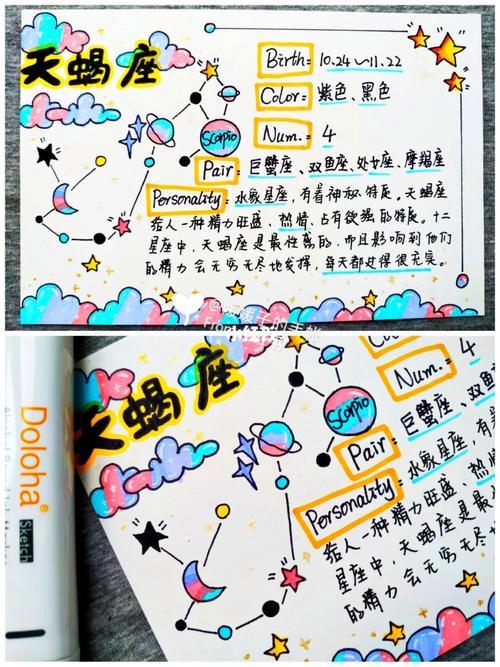 天蝎座
Birth = 10.24～11.22
Color = 紫色、黑色
Scorpio
Num. = 4
Pair = 巨蟹座、双鱼座、处女座、摩羯座
Personality = 水象星座，有着神秘特质。天蝎座
给人一种精力旺盛、热情、占有欲强的特质。十二
星座中，天蝎座是最性感的，而且影响到他们
的精力会无穷无尽地发挥，每天都过得很充实。
天蝎座
Num. = 4
Scorpio
Pair = 巨蟹座、双鱼
Personality = 水象星座，有着
给人一种精力旺盛、热情
星座中，天蝎座是最
的精力会无穷无尽地
Doloha
Sketch